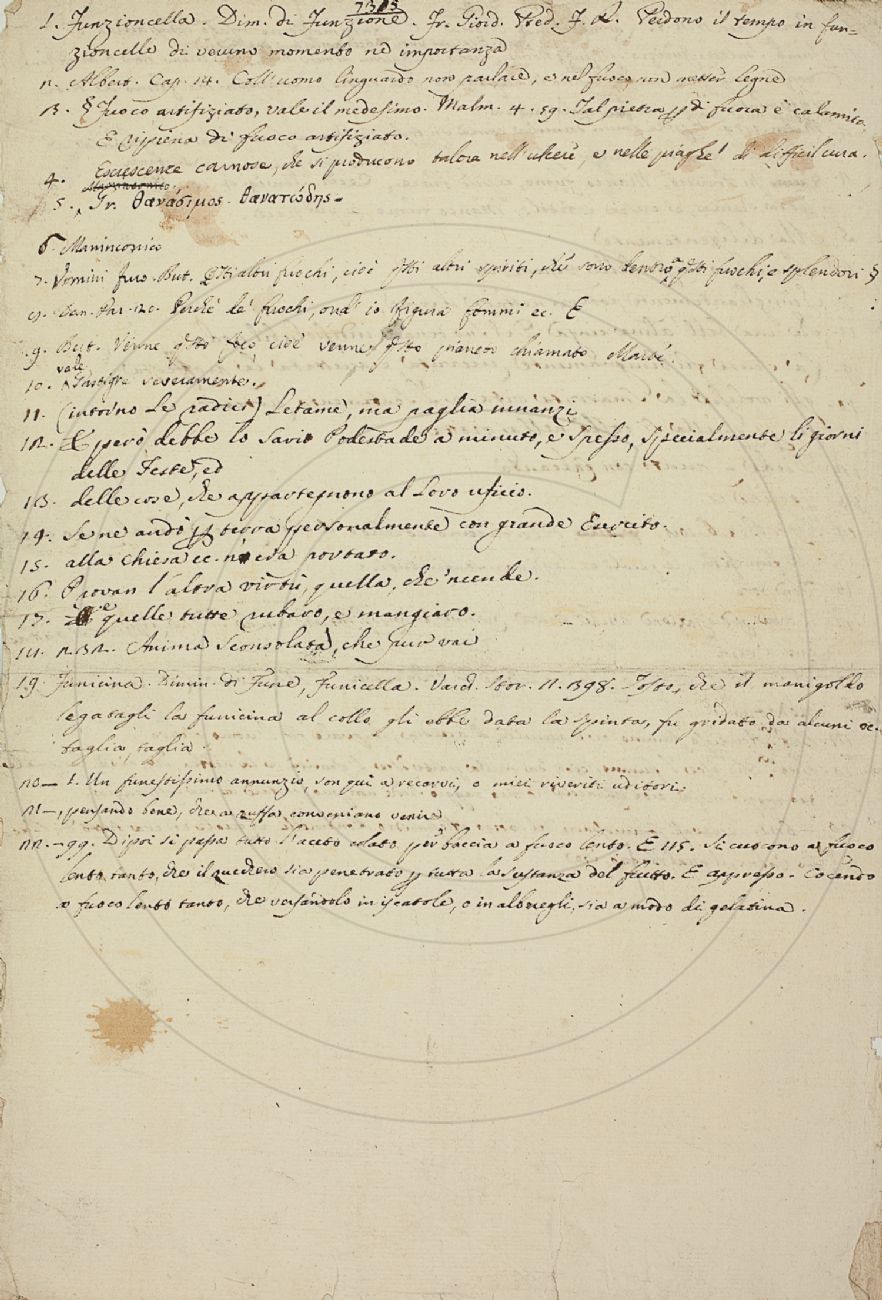 7313
1. Funzioncella. Dim. di Funzione. Fr. Giord. Pred. F. R. Perdono il tempo in fun=
zioncelle di veruno momento nè importanza
2. Albert. Cap. 14. Coll'uomo linguardo non parlare, e nel fuoco non metter legne
3. § Fuoco artifiziato, vale il medesimo. Malm. 4. 59. Tal pietra di fuora è calamita
E ripiena di fuoco artifiziato.
4. Escrescenze carnose, che si producono talora nell'ulcere, e nelle piaghe di difficil cura.
5. Gr. θανάσιμος. θανατώδης.
6. Maninconico
7. Uomini furo. But. Questi altri fuochi, cioè questi altri spiriti, che sono dentro a questi fuochi, e splendori §
8. Dan. Par. 20. Perchè de' fuochi, ond' io figura fommi ec. E
9. But. Venne questo foco cioè venne questo pianeto chiamato Marte.
vale
10. Partigre veseramente.
11. (intorno le radici) Letame, ma paglia innanzi
12. E però debbe lo savio Podestade a minuto, e spesso, specialmente li giorni
delle Feste, ed
13. delle cose, che appartegnono al loro uficio.
14. Se ne andò per terra personalmente con grande Esercito.
15. alla chiesa ec. n'era portato.
16. Provan l'altra virtù, quella, che 'ncende.
17. e quelle tutte rubaro, e mangiaro.
18. 232. Anima sconsolata, che pur vai
19. Funicina. Dimin. di Fune, Funicella. Varch. Stor. 11. 398. Tosto, che il manigoldo
legatagli la funicina al collo gli ebbe data la spinta, fu gridato da alcuni ec.
taglia, taglia.
20 — 1. Un funestissimo annunzio, son qui a recarvi, o miei riveriti uditori
21 —, pensando bene, che a zuffa conveniano venire
22. — 99. Dipoi si passa tutto l'aceto colato per baccia a fuoco lento. E 115. Si cuocono a fuoco
lento tanto, che il zucchero sia penetrato per tutta la sustanza del frutto. E appresso. Cocendo
a fuoco lento tanto, che versandolo in iscatole, o in alberegli, sia a modo di gelatina.